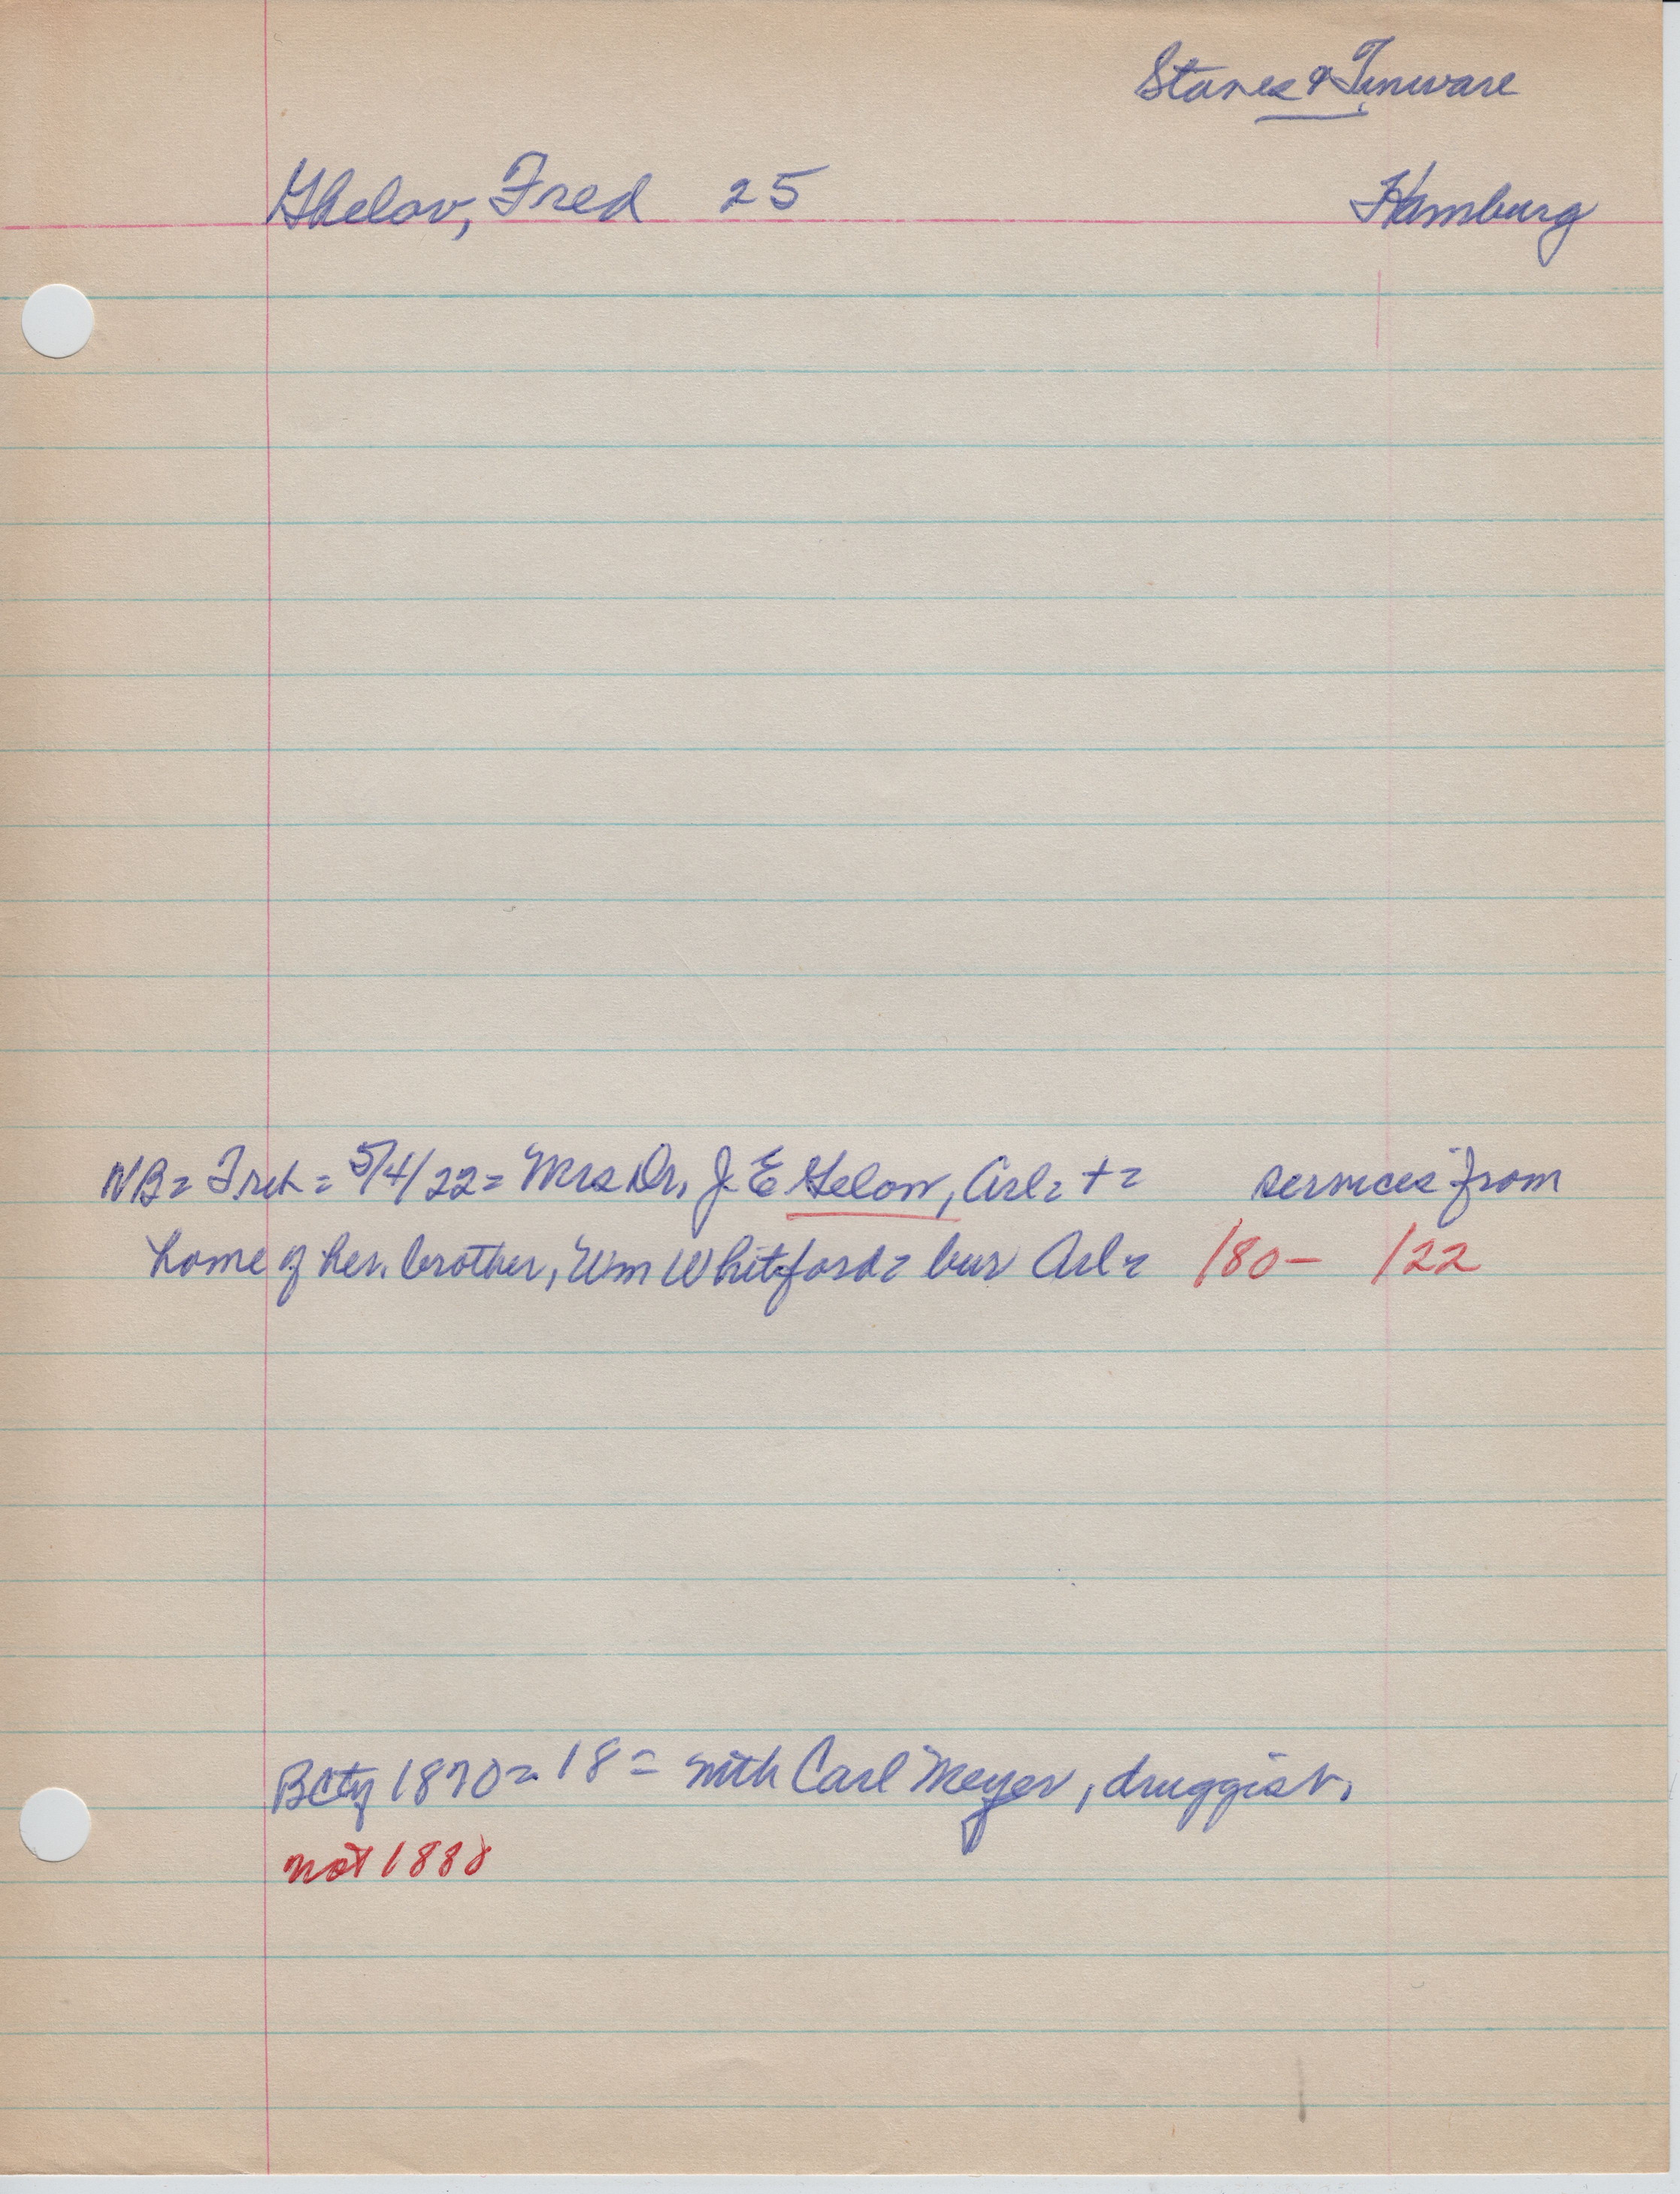 Stoves & Tinware
Ghelov, Fred 25 Hamburg
NB= Trib= 5/4/22= Mrs Dr. J. E. Gelow, Arl= += services from
home of her brother, Wm Whitford= bur Arl= /80- /22
BCty 1870= 18= with Carl Meyer, druggist.
not 1888